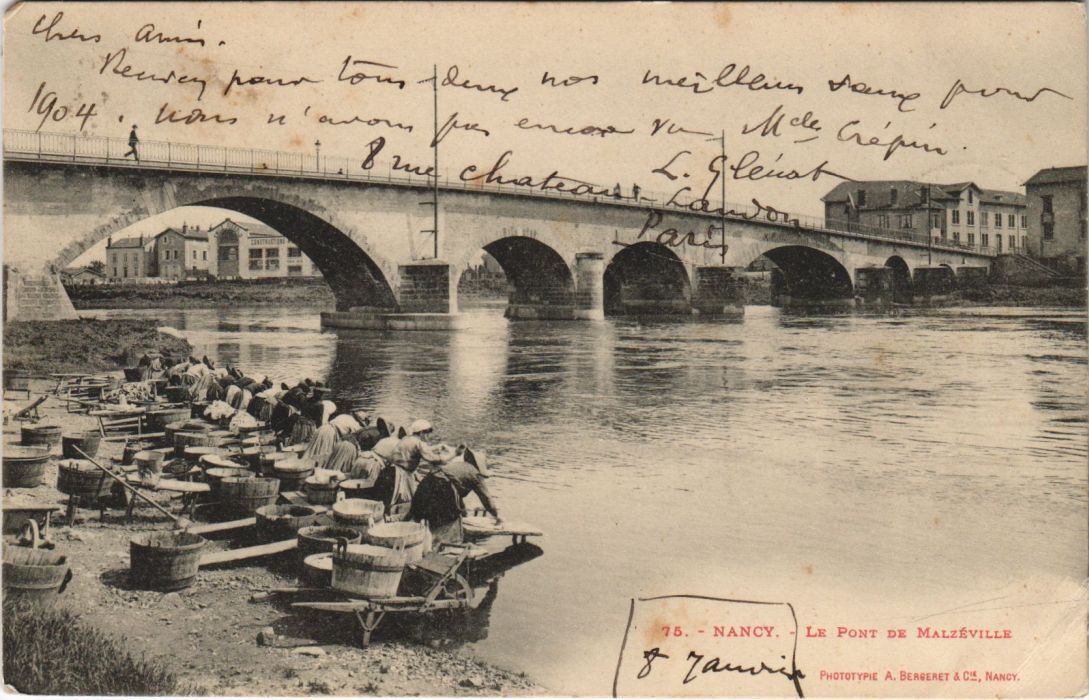 Chers Amis.
Recevez pour tous deux nos meilleurs vœux pour
1904. nous n'avons pas encore vu Mde Crépin.
L. Glénat
8 rue chateau-Landon
Paris
CONSTRUCTIONS
75. - NANCY. - LE PONT DE MALZÉVILLE
8 Janvier
PHOTOTYPIE A. BERGERET & Cie, NANCY.